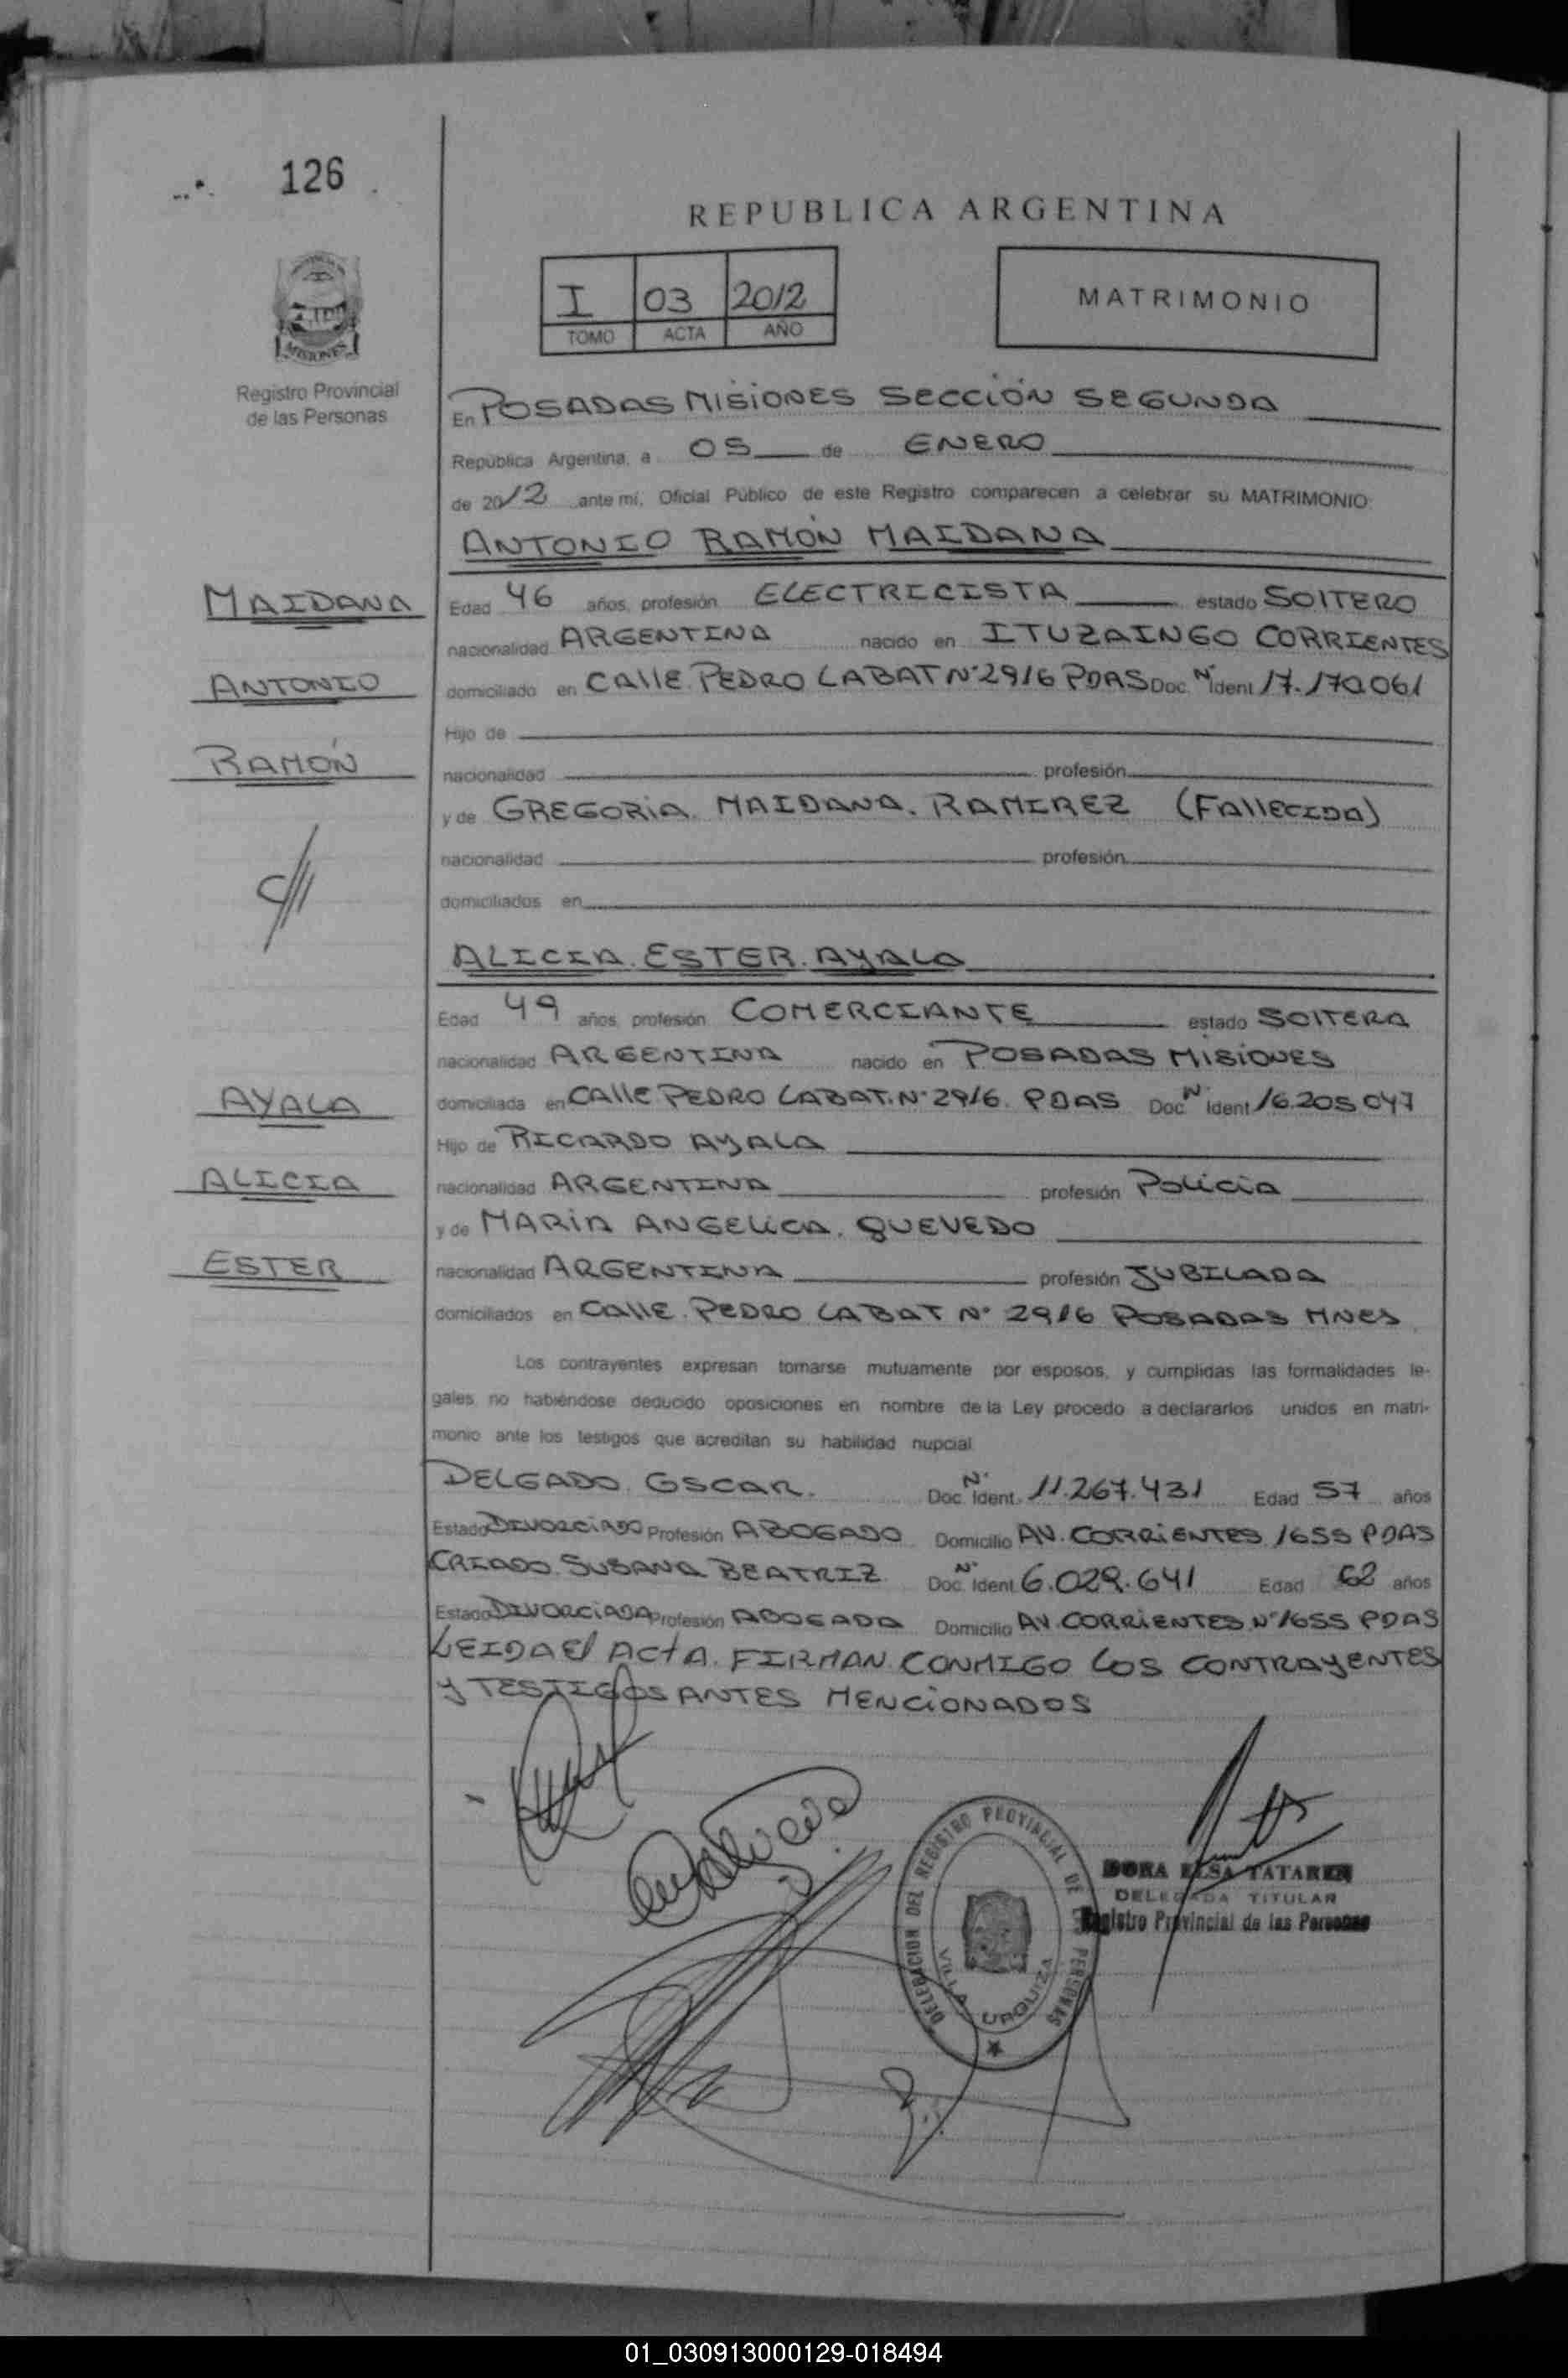 126
REPUBLICA ARGENTINA
I 03 2012
TOMO ACTA AÑO
MATRIMONIO
MISIONES
Registro Provincial
de las Personas
En POSADAS MISIONES SECCIÓN SEGUNDA
República Argentina, a 05 de ENERO
de 2012 ante mí, Oficial Público de este Registro comparecen a celebrar su MATRIMONIO:
ANTONIO RAMÓN MAIDANA
MAIDANA
Edad 46 años, profesión ELECTRICISTA estado SOLTERO
nacionalidad ARGENTINA nacido en ITUZAINGO CORRIENTES
ANTONIO
domiciliado en CALLE PEDRO LABAT Nº 2916 PDAS Doc. Nº Ident 17.170.061
Hijo de
RAMÓN
nacionalidad profesión
y de GREGORIA MAIDANA. RAMIREZ (FALLECIDA)
nacionalidad profesión
domiciliados en
ALICIA ESTER AYALA
Edad 49 años, profesión COMERCIANTE estado SOLTERA
nacionalidad ARGENTINA nacido en POSADAS MISIONES
AYALA
domiciliada en CALLE PEDRO LABAT Nº 2916 PDAS Doc. Nº Ident 16.205.047
Hijo de RICARDO AYALA
ALICIA
nacionalidad ARGENTINA profesión Policia
y de MARIA ANGELICA QUEVEDO
ESTER
nacionalidad ARGENTINA profesión JUBILADA
domiciliados en CALLE PEDRO LABAT Nº 2916 POSADAS MNES
Los contrayentes expresan tomarse mutuamente por esposos, y cumplidas las formalidades le-
gales no habiéndose deducido oposiciones en nombre de la Ley procedo a declararlos unidos en matri-
monio ante los testigos que acreditan su habilidad nupcial
DELGADO OSCAR. Doc. Nº Ident. 11.267.431 Edad 57 años
Estado DIVORCIADO Profesión ABOGADO Domicilio AV. CORRIENTES 1655 PDAS
CRIADO SUSANA BEATRIZ Doc. Nº Ident 6.029.641 Edad 62 años
Estado DIVORCIADA Profesión ABOGADA Domicilio AV. CORRIENTES Nº 1655 PDAS
LEIDA El ACTA. FIRMAN CONMIGO LOS CONTRAYENTES
Y TESTIGOS ANTES MENCIONADOS
DELEGACION DEL REGISTRO PROVINCIAL DE LAS PERSONAS
VILLA URQUIZA
DORA ELSA TATAREN
DELEGADA TITULAR
Registro Provincial de las Personas
01_030913000129-018494